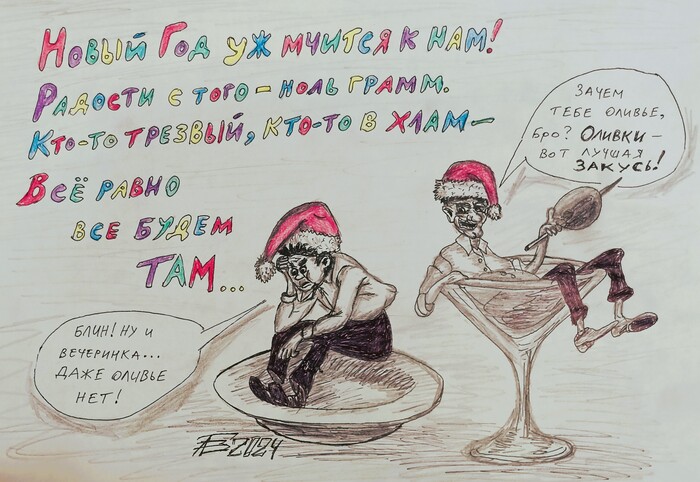 Новый Год уж мчится к нам!
Радости с того - ноль грамм.
Кто-то трезвый, кто-то в хлам -
Всё равно
все будем
ТАМ...
Зачем
тебе оливье,
бро? Оливки -
вот лучшая
закусь!
Блин! Ну и
вечеринка...
даже оливье
нет!
2024